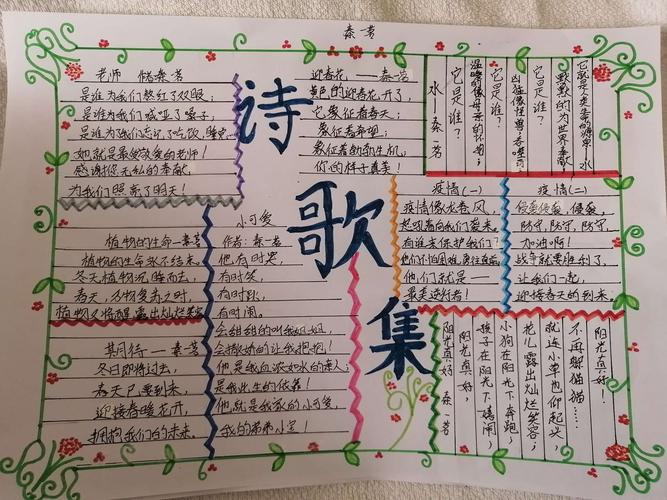 秦芳
诗歌集
老师 储秦芳
是谁为我们熬红了双眼；
是谁为我们喊哑了嗓子；
是谁为我们忘记了吃饭、睡觉。
她就是最受敬爱的老师！
感谢你无私的奉献，
为我们照亮了明天！
迎春花 ——秦芳
黄色的迎春花开了，
它象征着春天；
象征着希望；
象征着勃勃生机，
你的样子真美！
水——秦芳
它是谁？
温暖的像母亲的怀抱；
它是谁？
它是谁？
默默的为世界奉献！
疫情（一）
疫情像龙卷风，
起吼着向我们袭来。
有谁来保护我们？
他们就是——
最美逆行者！
疫情（二）
侵袭，
防守，防守，防守，
加油啊！
战争就要胜利了，
让我们一起，
迎接春天的到来。
植物的生命—秦芳
植物的生命永不结束。
冬天植物沉睡而去，
春天，万物复苏之时，
植物又将醒，露出灿烂笑容
期待——秦芳
冬日即将过去，
春天已要到来，
迎接春暖花开，
拥抱我们的未来。
小可爱
作者：秦芳
他，有时哭，
有时笑，
有时趴，
有时闹。
会甜甜的叫我姐姐，
会撒娇的让我抱抱！
他是我血浓如水的亲人；
是我此生的依靠！
他就是我家的小可爱，
我的弟弟小宝！
阳光真好 秦芳
阳光真好，
孩子在阳光下嬉闹
小狗在阳光下奔跑；
花儿露出灿烂笑容；
就连小草也仰起头，
不再躲猫猫……
阳光真好！